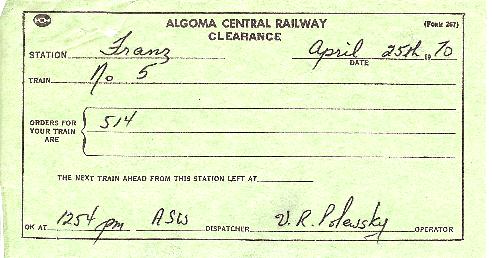 ALGOMA CENTRAL RAILWAY (Form 267)
CLEARANCE
STATION Franz April 25th 1970
DATE
TRAIN No 5
ORDERS FOR YOUR TRAIN ARE 514
THE NEXT TRAIN AHEAD FROM THIS STATION LEFT AT
OK AT 1254 pm ASW DISPATCHER V. R. Polewsky OPERATOR